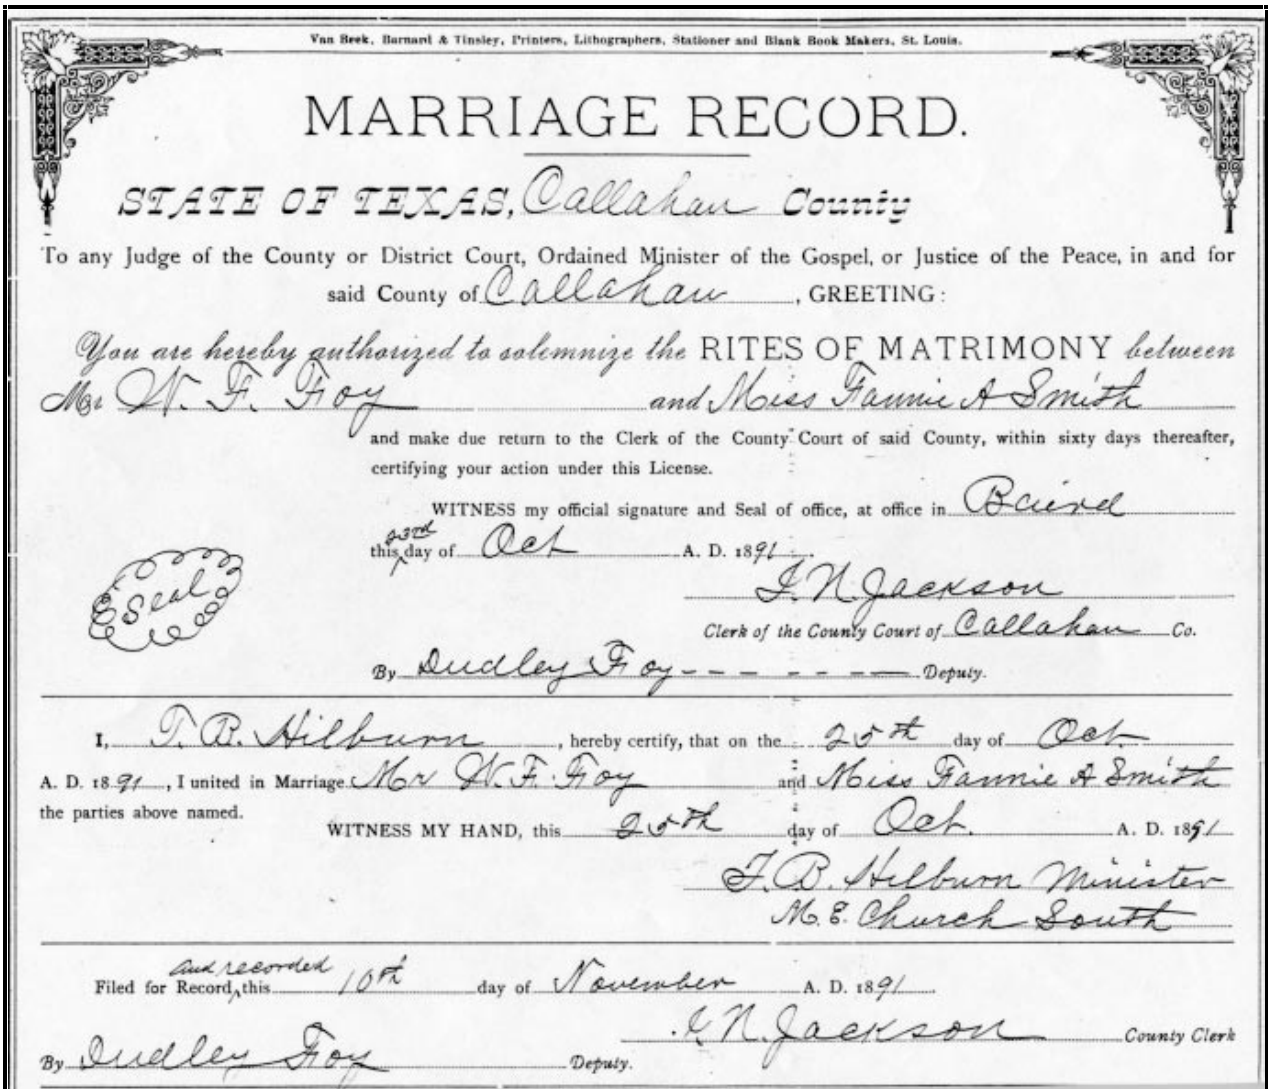 Van Beek, Barnard & Tinsley, Printers, Lithographers, Stationer and Blank Book Makers, St. Louis.
MARRIAGE RECORD.
STATE OF TEXAS, Callahan County
To any Judge of the County or District Court, Ordained Minister of the Gospel, or Justice of the Peace, in and for
said County of Callahan, GREETING:
You are hereby authorized to solemnize the RITES OF MATRIMONY between
Mr W. F. Foy and Miss Fannie A Smith
and make due return to the Clerk of the County Court of said County, within sixty days thereafter,
certifying your action under this License.
WITNESS my official signature and Seal of office, at office in Baird
this 23rd day of Oct A. D. 1891.
I. N. Jackson
Seal
Clerk of the County Court of Callahan Co.
By Dudley Foy Deputy.
I, T. B. Hilburn, hereby certify, that on the 25th day of Oct.
A. D. 1891, I united in Marriage Mr W. F. Foy and Miss Fannie A Smith
the parties above named.
WITNESS MY HAND, this 25th day of Oct. A. D. 1891
T. B. Hilburn Minister
M. E. Church South
Filed for Record and recorded this 10th day of November A. D. 1891.
I. N. Jackson County Clerk
By Dudley Foy Deputy.